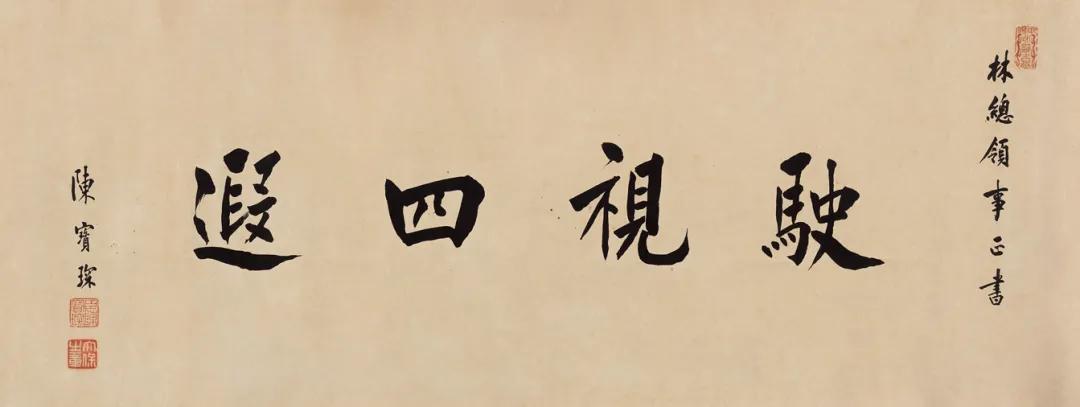 林總領事正書
駛視四遐
陳寶琛